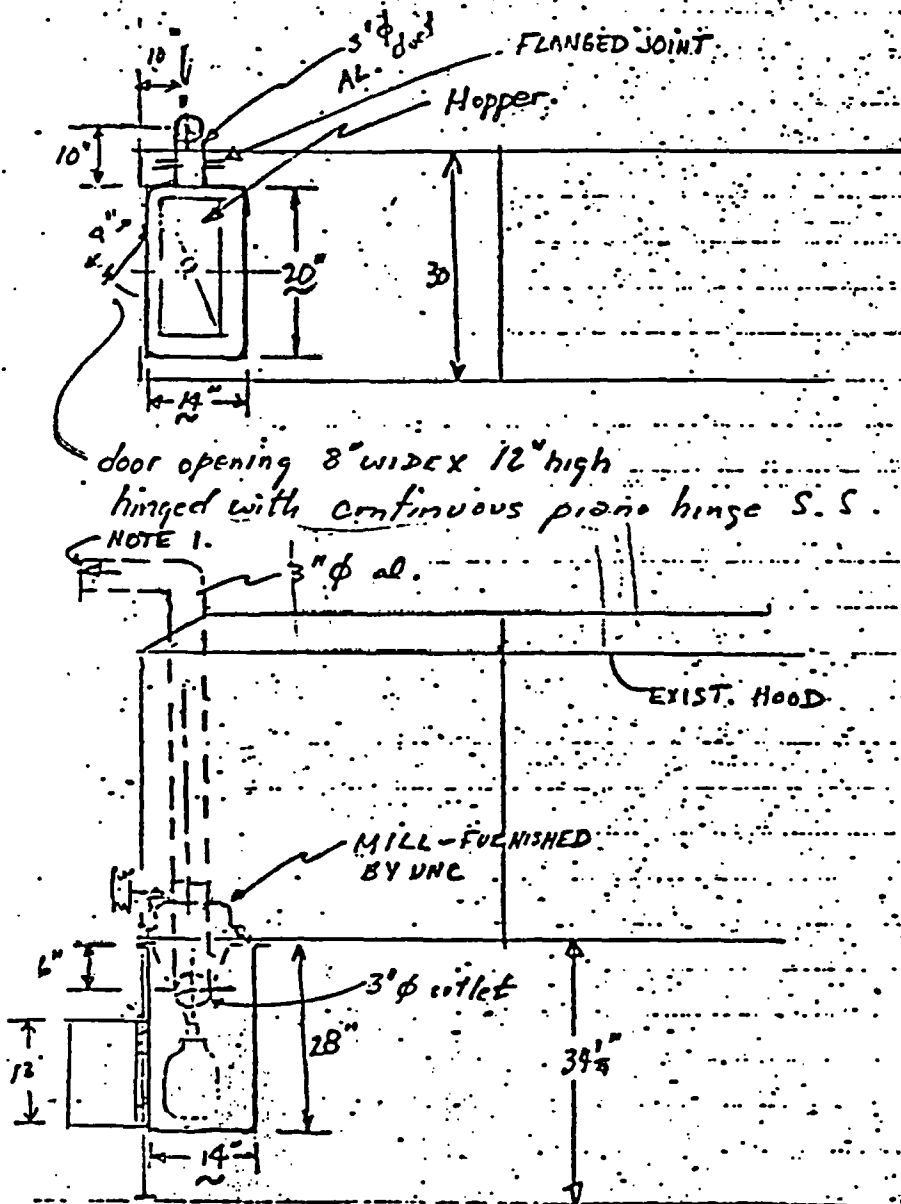 10"
3" ϕ duct
AL.
FLANGED JOINT
Hopper
10"
20"
30
14"
door opening 8" WIDE X 12" high
hinged with continuous piano hinge S.S.
NOTE 1.
3" ϕ al.
EXIST. HOOD
MILL - FURNISHED
BY UNC
6"
3" ϕ outlet
28"
12
14"